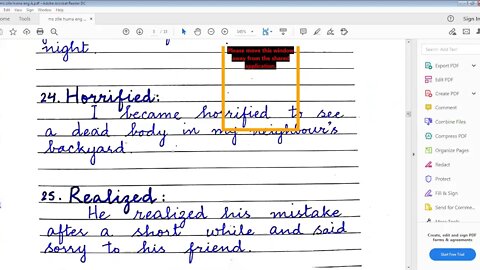 ms zille huma eng A.pdf - Adobe Acrobat Reader DC
Sign In
night.
Please move this window
away from the shared
application
24. Horrified:
I became horrified to see
a dead body in my neighbour's
backyard
25. Realized:
He realized his mistake
after a short while and said
sorry to his friend.
Export PDF
Edit PDF
Create PDF
Comment
Combine Files
Compress PDF
Organize Pages
Redact
Protect
Fill & Sign
Send for Comme...
More Tools
Create, edit and sign PDF
forms & agreements
Start Free Trial